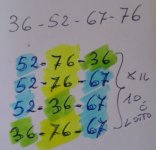 36-52-67-76
52-76-36
52-76-67
52-36-67
36-76-67
X IL
10 e
LOTTO